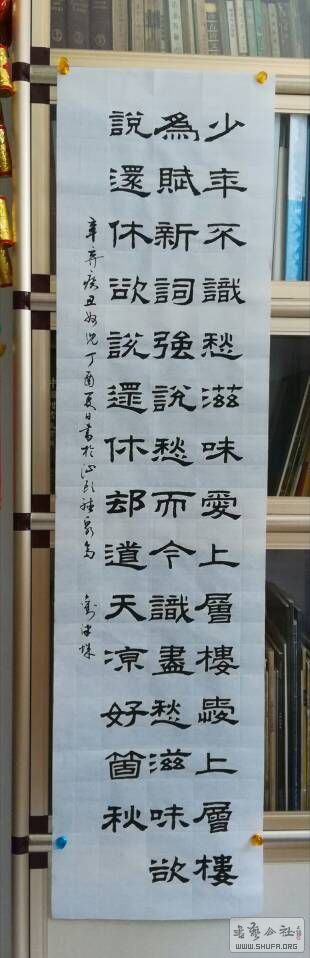 少年不識愁滋味愛上層樓愛上層樓
為賦新詞強說愁而今識盡愁滋味欲
說還休欲說還休却道天凉好箇秋
辛弃疾丑奴兒丁酉夏日書於汕頭
书艺公社
WWW.SHUFA.ORG